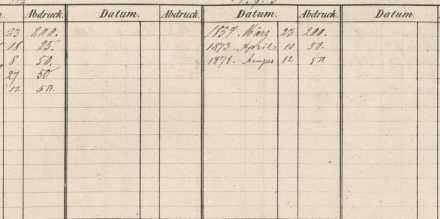 Abdruck. Datum. Abdruck. Datum. Abdruck. Datum.
23 200. März 23 200.
18 25. 1873 April 10 50.
8 50. 1878. 12 50
27 50
12 50.